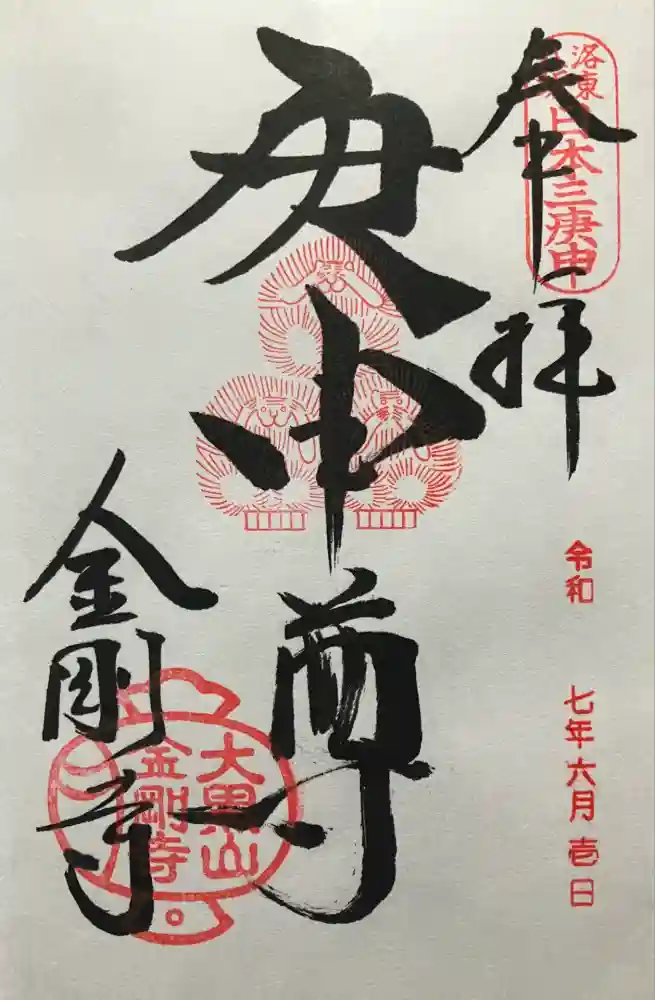 洛東
日本三庚申
奉拝
令和 七年六月壱日
庚申尊
金剛寺
大黒山
金剛寺